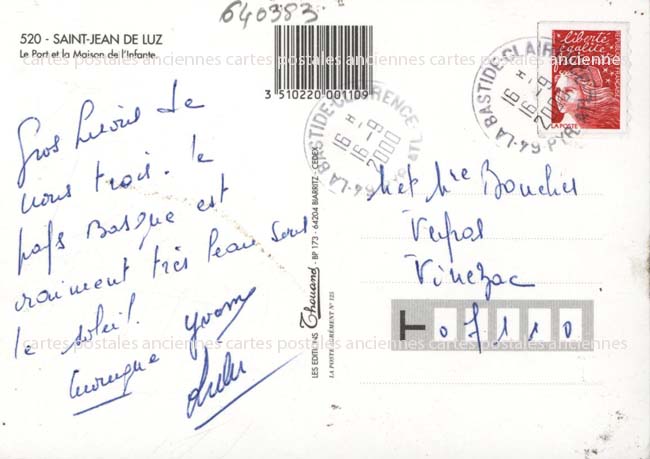 640383
520 - SAINT-JEAN DE LUZ
Le Port et la Maison de l'Infante.
3 510220 001109
Gros de
nous trois. Le
pays Basque est
vraiment très beau sous
le soleil.
Yvonne
Lulu
LES EDITIONS Thouand - BP 173 - 64204 BIARRITZ - CEDEX
LA POSTE AGRÉMENT N° 125
64-LA BASTIDE-CLAIRENCE
16 H
16-9
2000
64-LA BASTIDE-CLAIRENCE
16 H
16-9
2000
liberté
égalité
RÉPUBLIQUE FRANÇAISE
LA POSTE
Met Mre Boucher
Vinezac
T 07110
cartes postales anciennes cartes postales anciennes cartes postales anciennes cartes postales anciennes
cartes postales anciennes cartes postales anciennes cartes postales anciennes cartes postales anciennes
cartes postales anciennes cartes postales anciennes cartes postales anciennes cartes postales anciennes